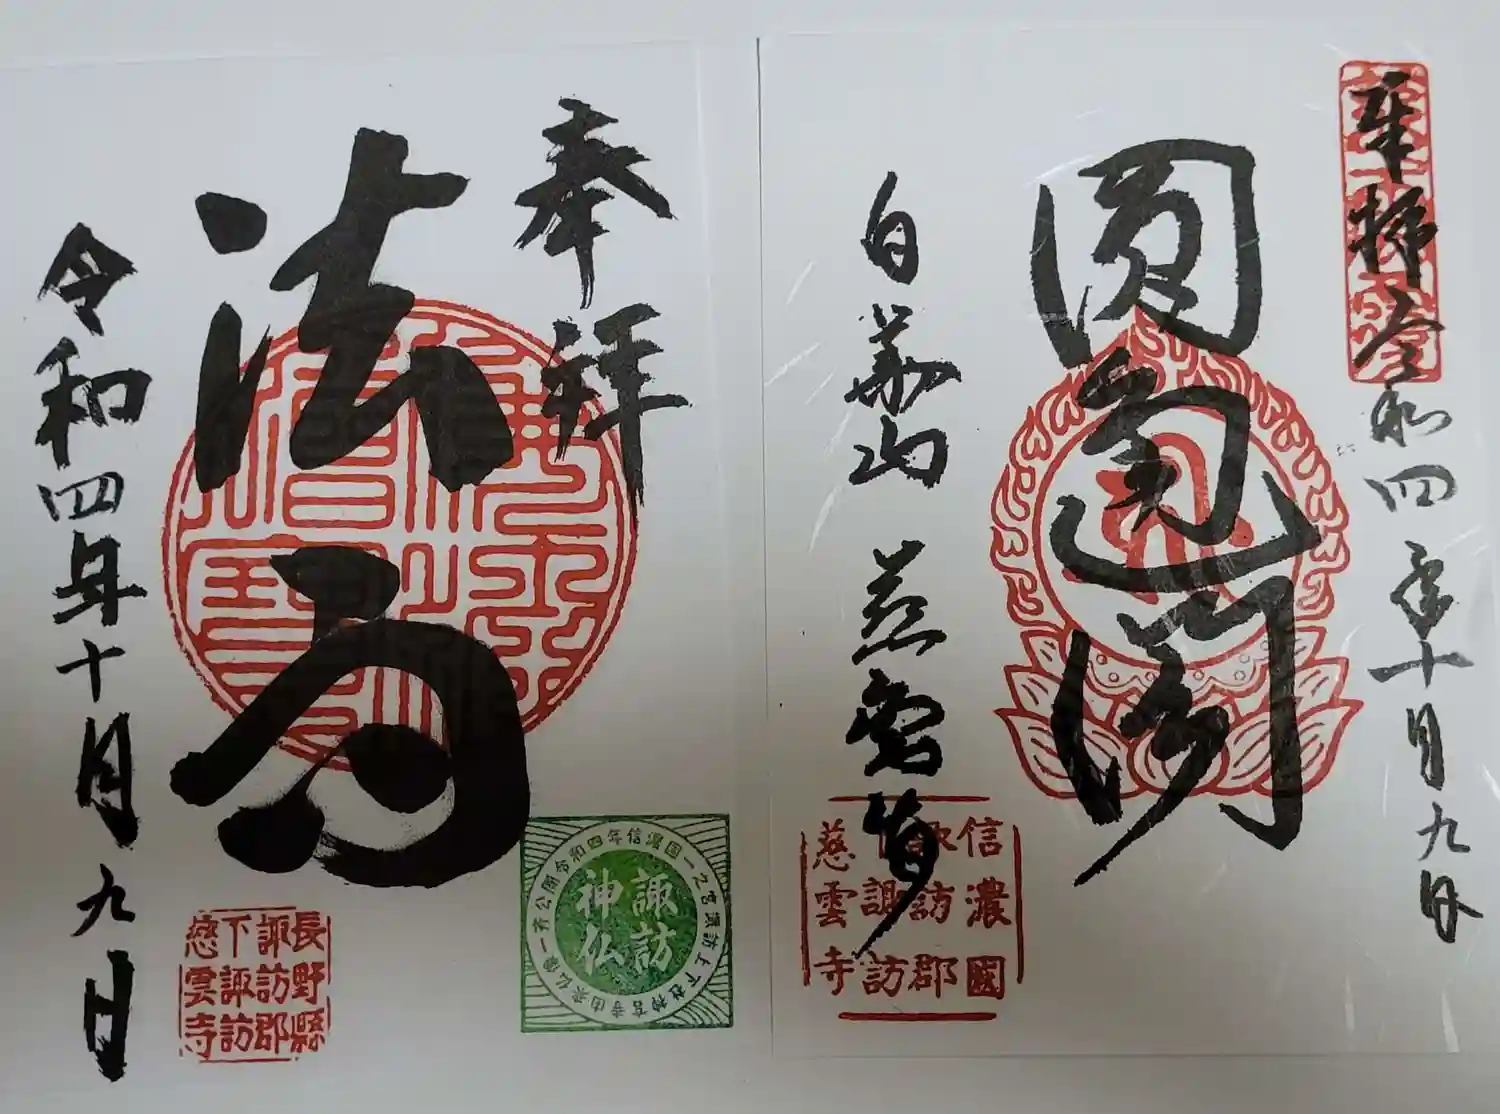 奉拝
令和四年十月九日
圓通閣
白華山 慈雲寺
信濃國
諏訪郡
下諏訪
慈雲寺
奉拝
法雨
令和四年十月九日
諏訪
神仏
令和四年信濃國一之宮諏訪上下社神宮寺由来仏像一斉公開
長野縣
諏訪郡
下諏訪
慈雲寺